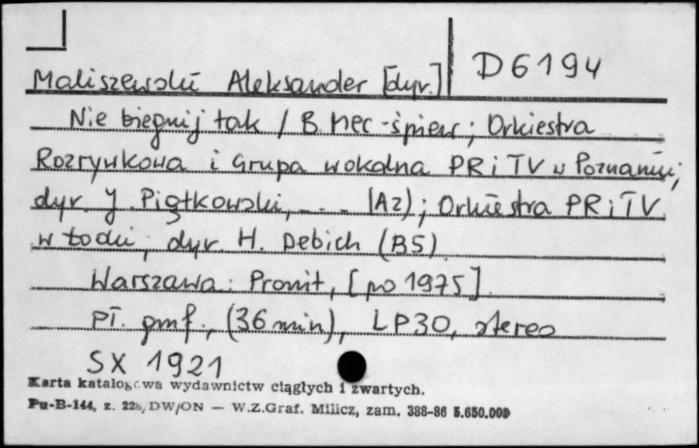 Maliszewski Aleksander [dyr.] D 6194
Nie biegnij tak / B. Mec - śpiew; Orkiestra
Rozrywkowa i Grupa wokalna PR i TV w Poznaniu;
dyr. J. Piątkowski, ... (A2); Orkiestra PR i TV
w Łodzi, dyr. H. Debich (B5)
Warszawa: Pronit, [po 1975]
Pł. gmf., (36 min), LP30, stereo
SX 1921
Karta katalogowa wydawnictw ciągłych i zwartych.
Pu-B-144, z. 22b/DW/ON — W.Z.Graf. Milicz, zam. 388-86 5.650.000